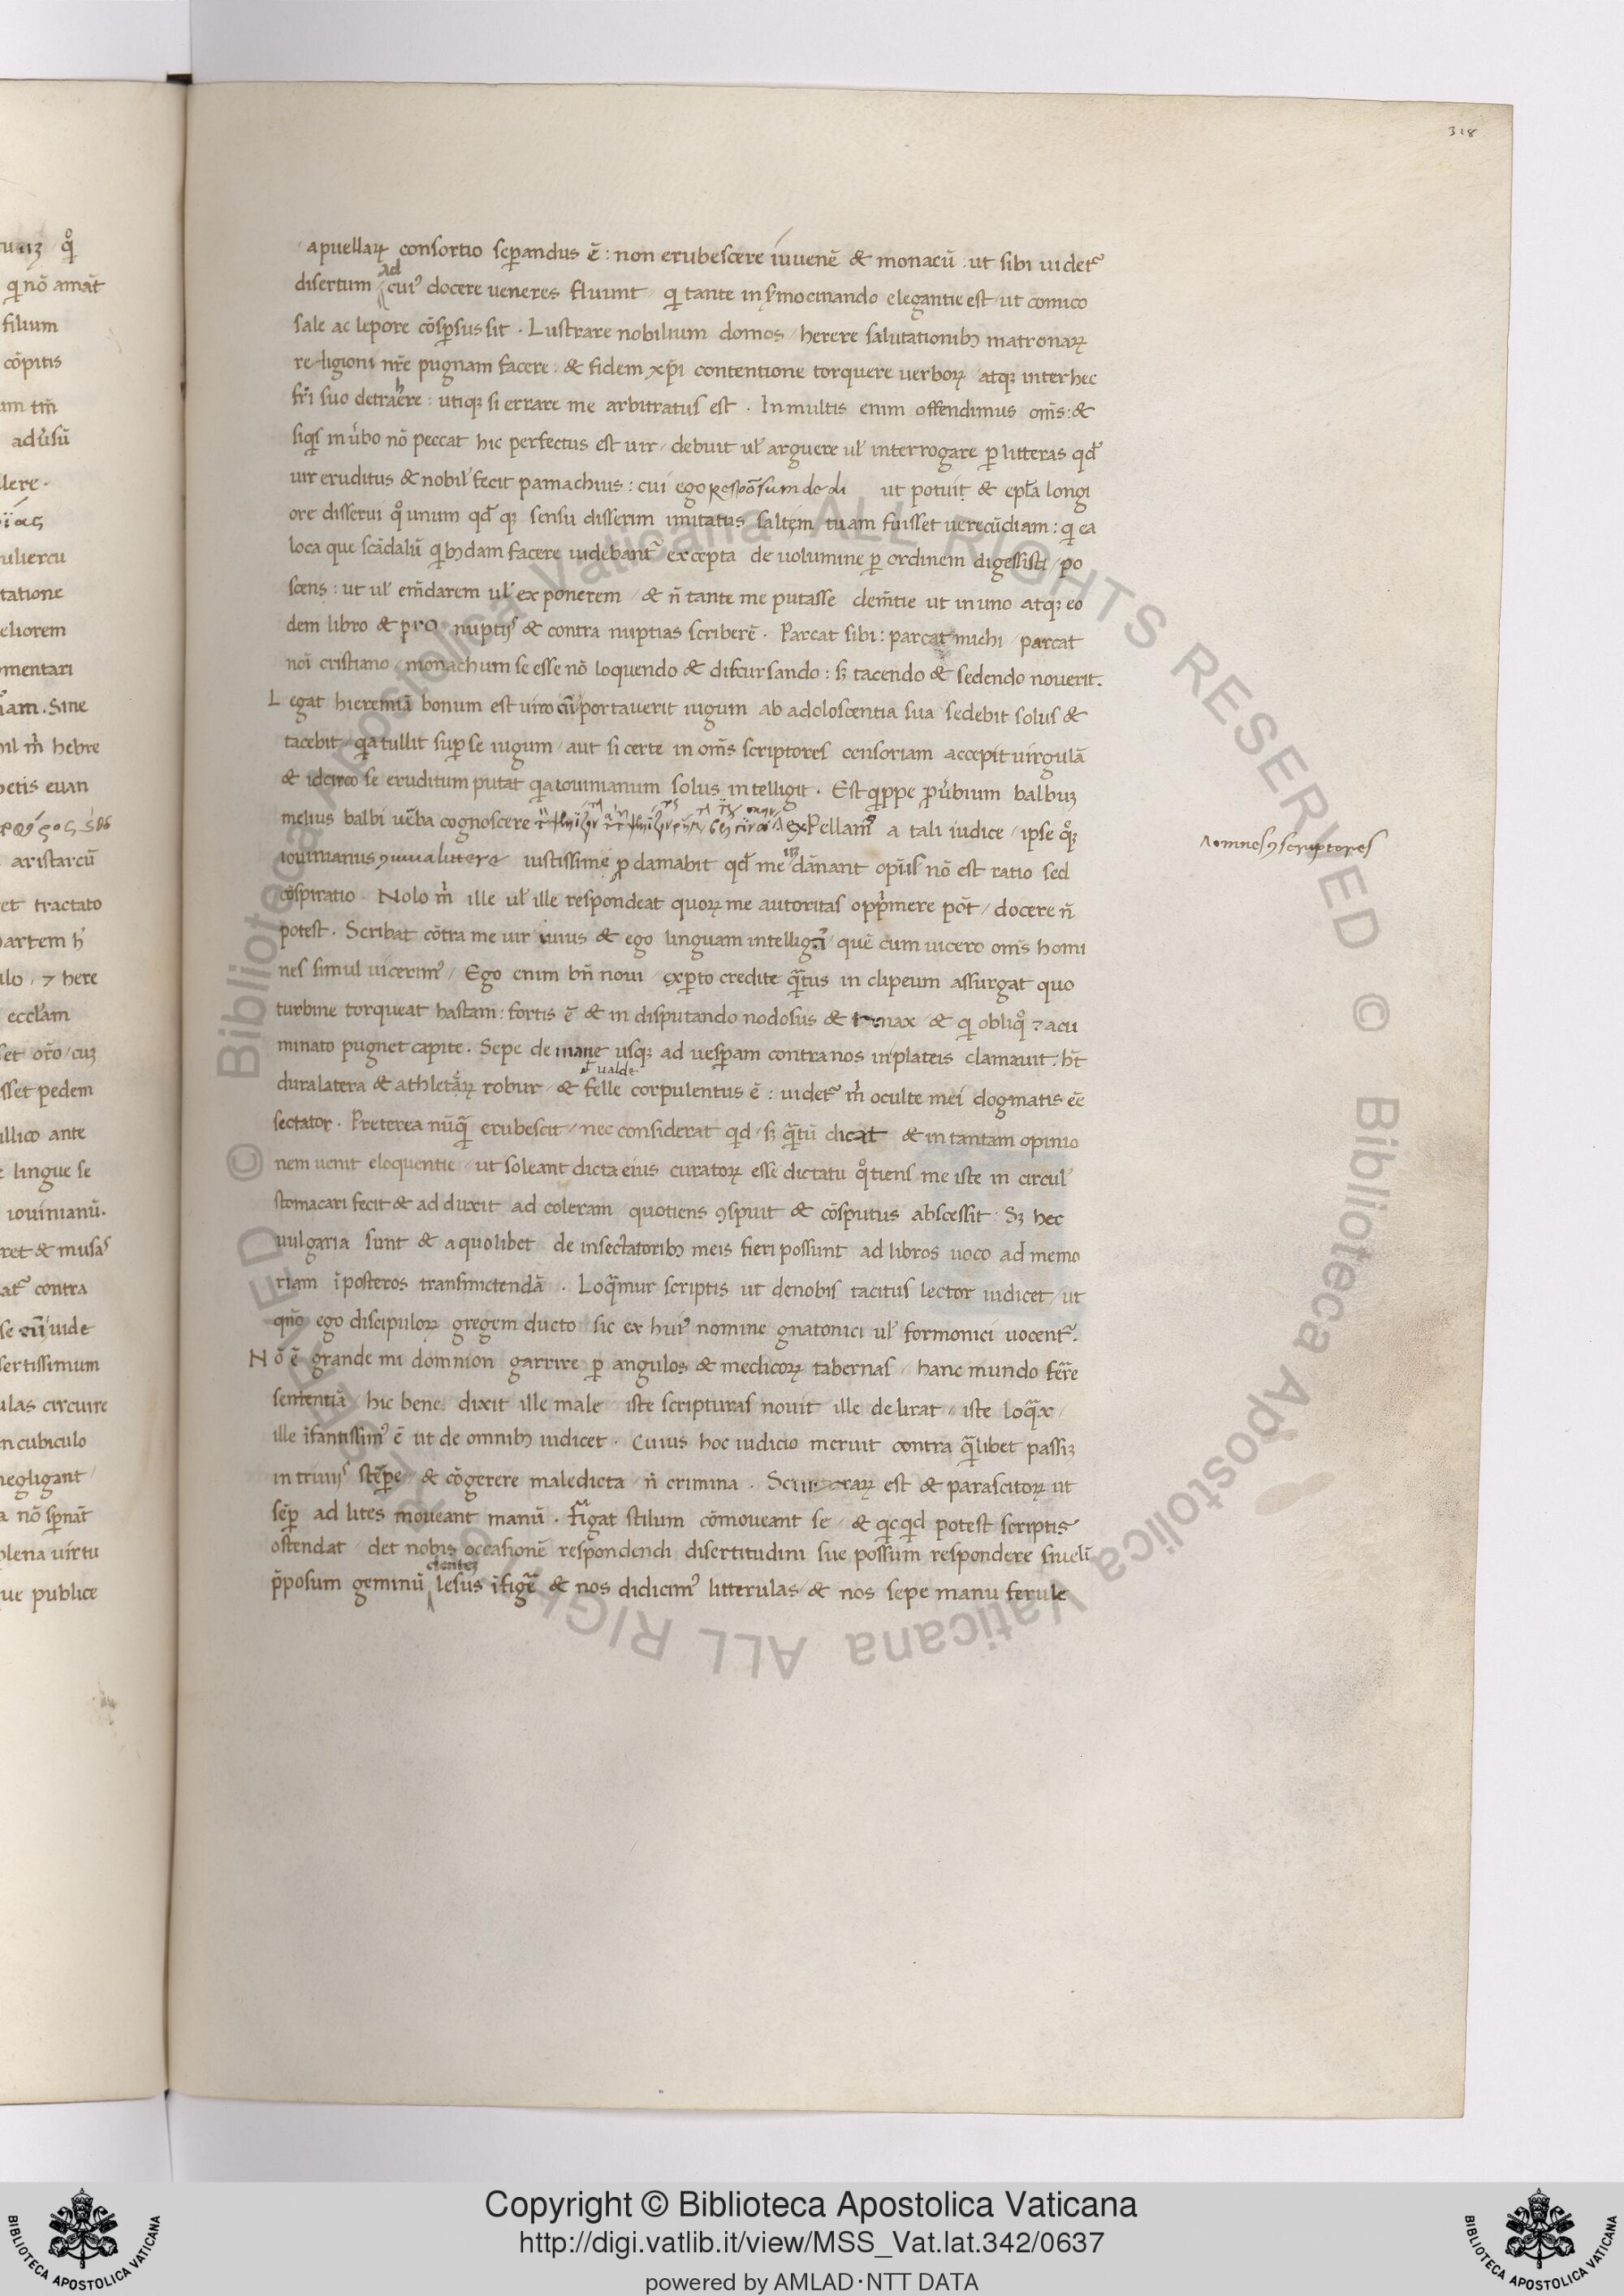 318
a puellaꝝ consortio sep̄andus ē : non erubescere iuuenē & monacū . ut sibi uidetᷣ
disertum ad cuiꝰ docere ueneres fluunt / qi tante in s̓mocinando elegantie est / ut comico
sale ac lepore cōsp̄sus sit . Lustrare nobilium domos / herere salutationibꝫ matronaꝝ
religioni nr̄e pugnam facere . & fidem xp̄i contentione torquere uerboꝝ atqꝫ inter hec
fr̄i suo detrahere : utiqꝫ si errare me arbitratus est . In multis enim offendimus om̄s : &
siqͥs in u̓bo nō peccat hic perfectus est uir / debuit ul̓ arguere ul̓ interrogare ꝑ litteras qd̓
uir eruditus & nobil̓ fecit pamachius : cui ego respōsum dedi ut potui & ep̄la longi
ore disserui qͦ unum qd̓ qꝫ sensu disserim imitatus saltem tuam fuisset uerecūdiam : qi ea
loca que scādalū qibꝫdam facere uidebantᷣ excepta de uolumine ꝑ ordinem digessisti / po
scens : ut ul̓ em̄darem ul̓ exponerem / & n̄ tante me putasse dem̄tie ut in uno atqꝫ eo
dem libro & pro nuptijs & contra nuptias scriberē . Parcat sibi : parcat michi / parcat
noī cristiano / monachum se esse nō loquendo & discursando : sꝫ tacendo & sedendo nouerit .
Legat hieremiā bonum est uiro cū portauerit iugum ab adoloscentia sua sedebit solus &
tacebit / qa tullit sup̄ se iugum / aut si certe in om̄s scriptores censoriam accepit uirgulā
& idcirco se eruditum putat qa iouinianum solus intelligit . Est qippe ꝓu̓bium balbuꝫ
melius balbi uēba cognoscere exPellamꝰ a tali iudice / ipse qͦqꝫ
omnes ꝯscriptores
iouinianus iustissime ꝓdamabit qd̓ me in dānant nō est ratio sed
cōspiratio . Nolo m̓ ille ul̓ ille respondeat quoꝝ me autoritas opp̓mere pōt / docere n̄
potest . Scribat cōtra me uir cuius & ego linguam intelligā / quē cum uicero om̄s homi
nes simul uicerimꝰ / Ego enim bn̄ noui / exꝑto credite qᷓtus in clipeum assurgat quo
turbine torqueat hastam : fortis ē & in disputando nodosus & tenax & qi obliqͦ ⁊ acu
minato pugnet capite . Sepe de mane usqꝫ ad uesp̄am contra nos in plateis clamauit . ht̄
dura latera & athletāꝝ robur / & ualde felle corpulentus ē : uidetᷣ m̓ oculte mei dogmatis eē
sectator . Preterea nūqᷓ erubescit / nec considerat qid / sꝫ qᷓtū dicat & in tantam opinio
nem uenit eloquentie / ut soleant dicta eius curatoꝝ esse dictatu qͦtiens me iste in circul̓
stomacari fecit & ad duxit ad coleram quotiens ꝯspuit & cōsputus abscessit . Sꝫ hec
uulgaria sunt & a quolibet de insectatoribꝫ meis fieri possunt ad libros uoco ad memo
riam ī posteros transmictendā . Loqᷓmur scriptis ut de nobis tacitus lector iudicet / ut
qn̄o ego discipuloꝝ gregem ducto sic ex huiꝰ nomine gnatonici ul̓ formonici uocentᷣ .
Nō ē grande mi domnion garrire ꝑ angulos & medicoꝝ tabernas / hanc mundo ferre
sententiā / hic bene dixit ille male iste scripturas nouit ille delirat / iste loqᷓx /
ille īfantissimꝰ ē ut de omnibꝫ iudicet . Cuius hoc iudicio meruit contra qᷓlibet passiꝫ
in triuijs stēpe / & cōgerere maledicta / n̄ crimina . Scurraꝝ est & parascitoꝝ ut
sēp̄ ad lites moueant manū . Figat stilum cōmoueant se / & qicqid potest scriptis
ostendat / det nobis occasionē respondendi disertitudini sue possum respondere si uelī
p̄posum geminū dentez lesus īfigē & nos didicimꝰ litterulas / & nos sepe manu ferule
Copyright © Biblioteca Apostolica Vaticana
http://digi.vatlib.it/view/MSS_Vat.lat.342/0637
powered by AMLAD·NTT DATA
BIBLIOTECA APOSTOLICA VATICANA
BIBLIOTECA APOSTOLICA VATICANA
© Biblioteca Apostolica Vaticana ALL RIGHTS RESERVED © Biblioteca Apostolica Vaticana ALL RIGHTS RESERVED